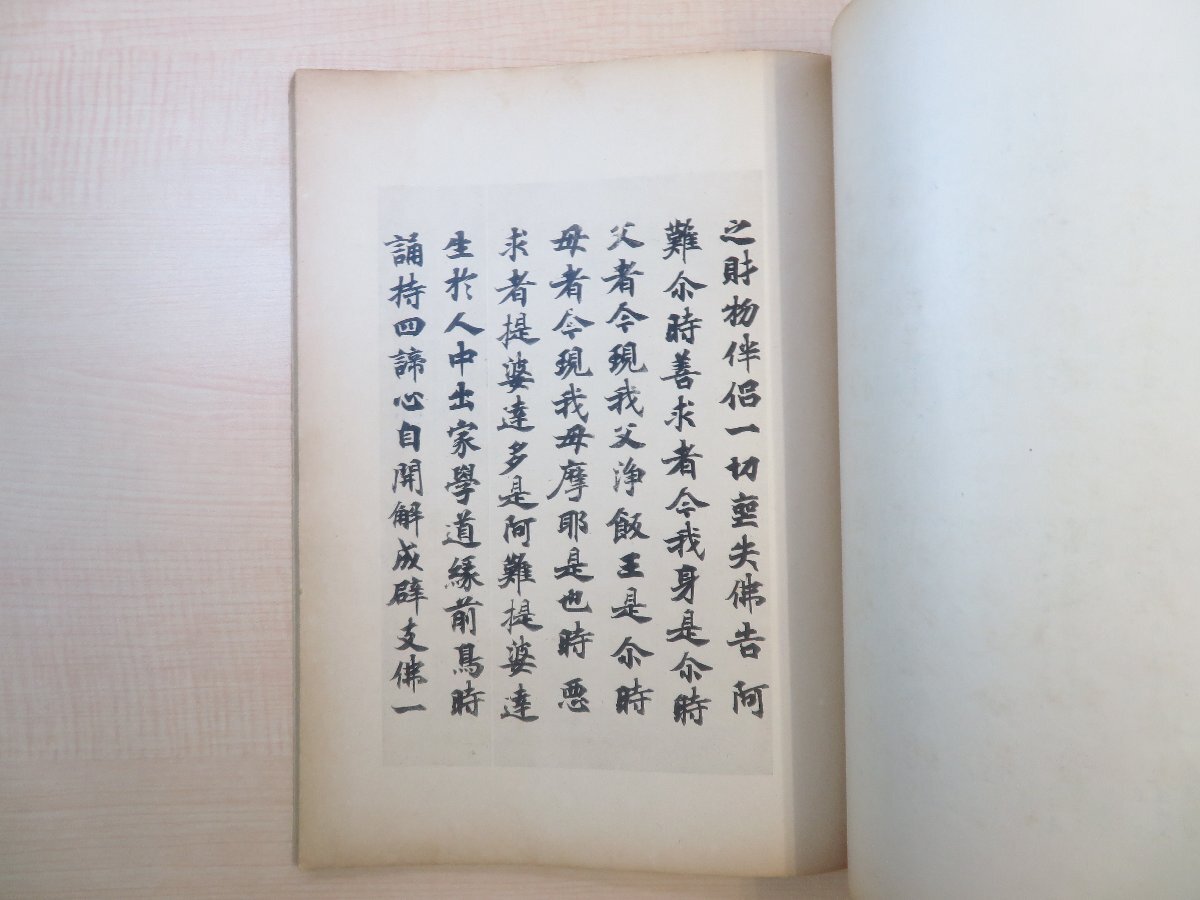 之財物伴侶一切喪失佛告阿
難尒時善求者今我身是尒時
父者今現我父淨飯王是尒時
母者今現我母摩耶是也時惡
求者提婆達多是阿難提婆達
生於人中出家學道緣前鳥時
誦持四諦心自開解成辟支佛一